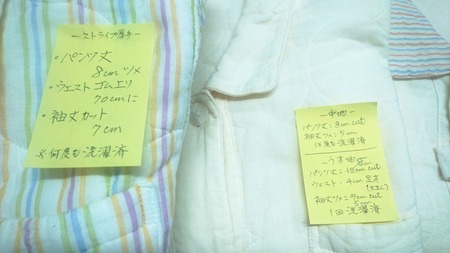 ―ストライプ厚手―
・パンツ丈
8cmツメ
・ウエスト ゴムエリ
70cmに
・袖丈カット
7cm
※何度も洗濯済
―中地―
パンツ丈:8cm cut
袖丈ツメ:5cm
何度も洗濯済
―うす地
パンツ丈=12cm cut
ウエスト=4cm足す
袖丈ツメ=7cm cut
5cm
1回洗濯済